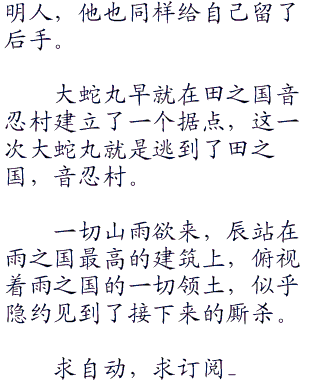 明人，他也同样给自己留了
后手。
大蛇丸早就在田之国音
忍村建立了一个据点，这一
次大蛇丸就是逃到了田之
国，音忍村。
一切山雨欲来，辰站在
雨之国最高的建筑上，俯视
着雨之国的一切领土，似乎
隐约见到了接下来的厮杀。
求自动，求订阅_